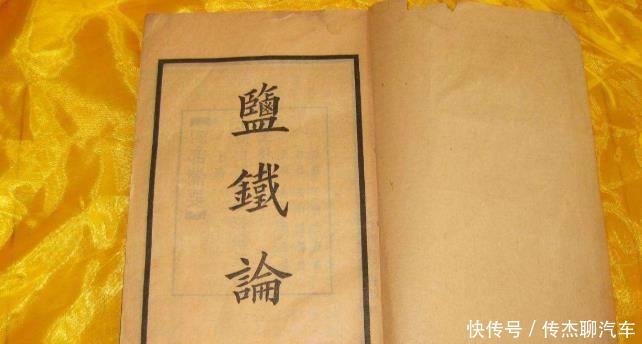 鹽鐵論
快传号／传杰聊汽车